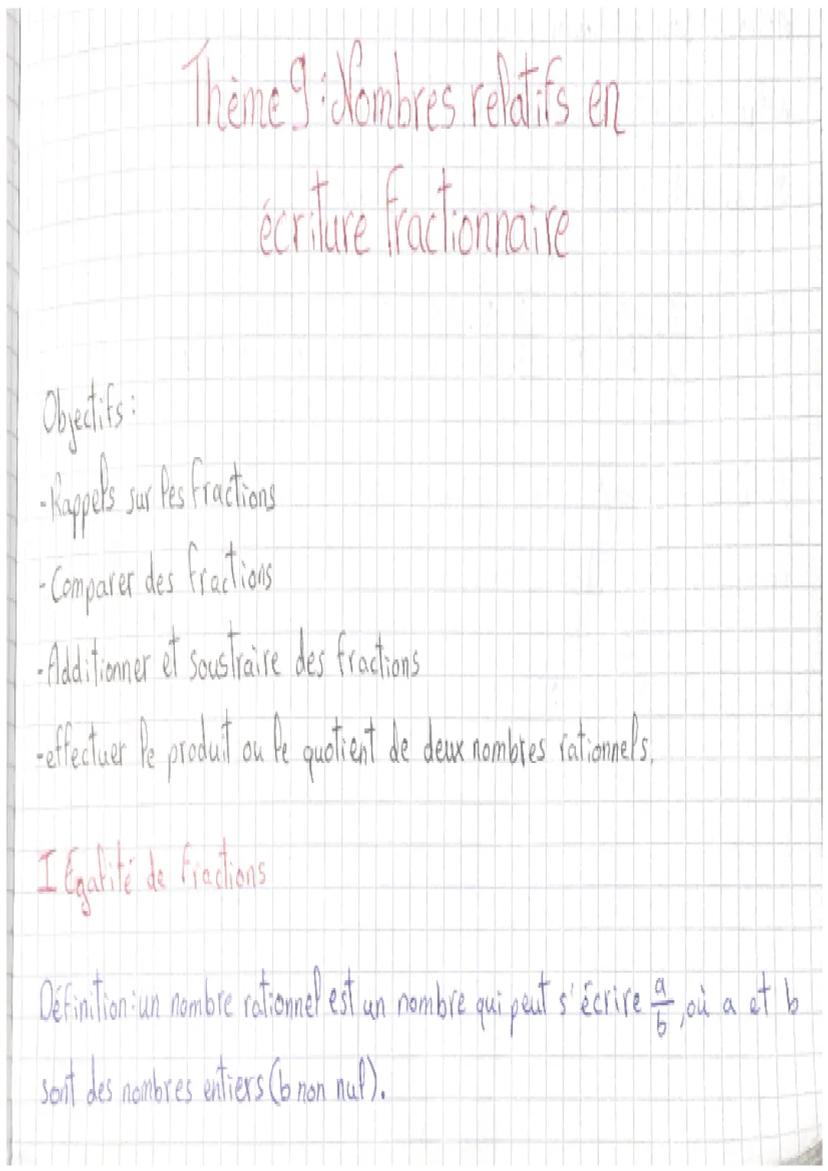 Thème 9 : Nombres relatifs en
écriture fractionnaire
Objectifs :
- Rappels sur les fractions
- Comparer des fractions
- Additionner et soustraire des fractions
- effectuer le produit ou le quotient de deux nombres rationnels.
I Egalité de fractions
Définition : un nombre rationnel est un nombre qui peut s'écrire a/b, où a et b
sont des nombres entiers (b non nul).